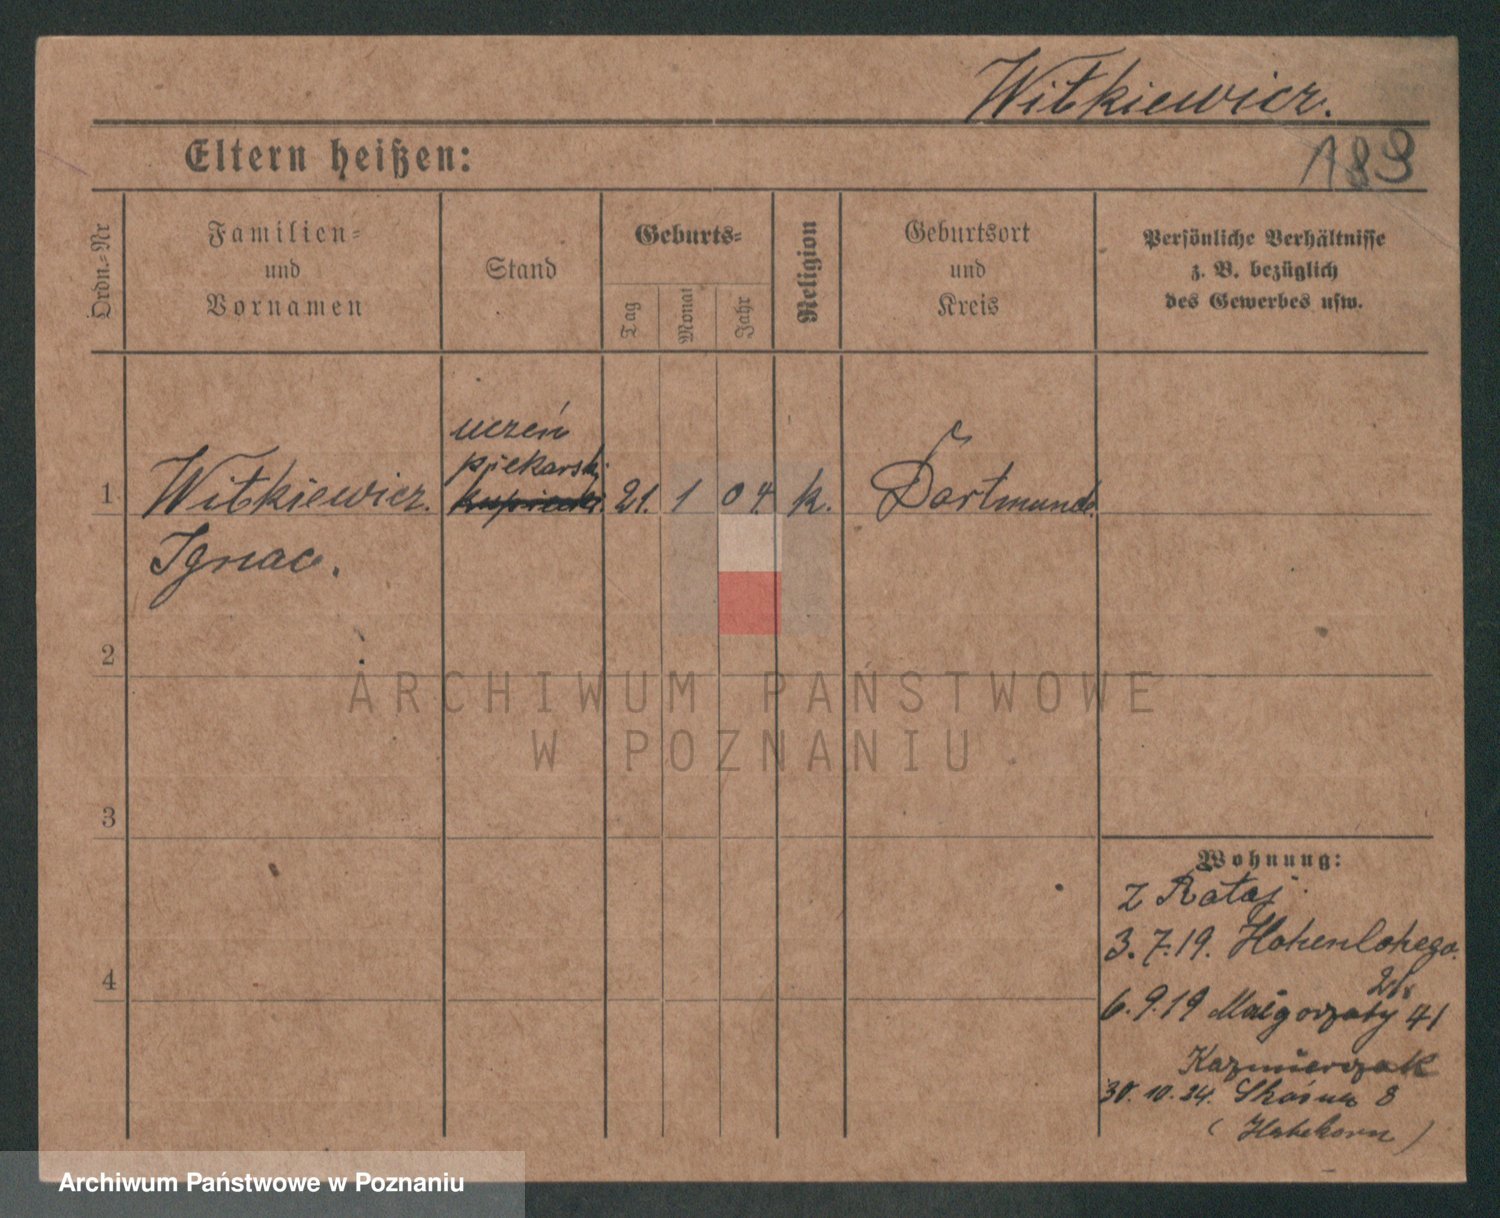 Witkiewicz.
Eltern heißen:
189
Ordn.-Nr
Familien-
und
Vornamen
Stand
Geburts-
Tag
Monat
Jahr
Religion
Geburtsort
und
Kreis
Persönliche Verhältnisse
z. B. bezüglich
des Gewerbes usw.
uczeń
piekarski
1 Witkiewicz. kupiecki 21. 1 04. k. Dortmund.
Ignac.
2
ARCHIWUM PAŃSTWOWE
W POZNANIU
3
Wohnung:
z Rataj
3.7.19. Hohenlohego.
4
6.9.19 Małgorzaty 41
Kazmierczak
30.10.24. 8
Archiwum Państwowe w Poznaniu